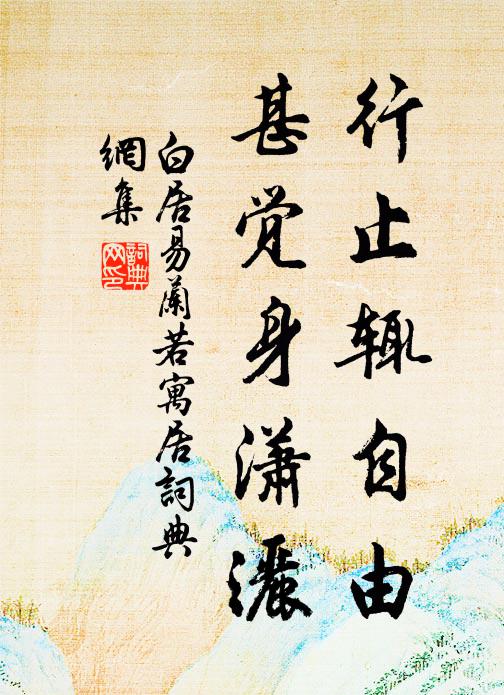 行止辄自由
甚觉身潇灑
白居易蘭若寓居詞典
網集
詞典
网印